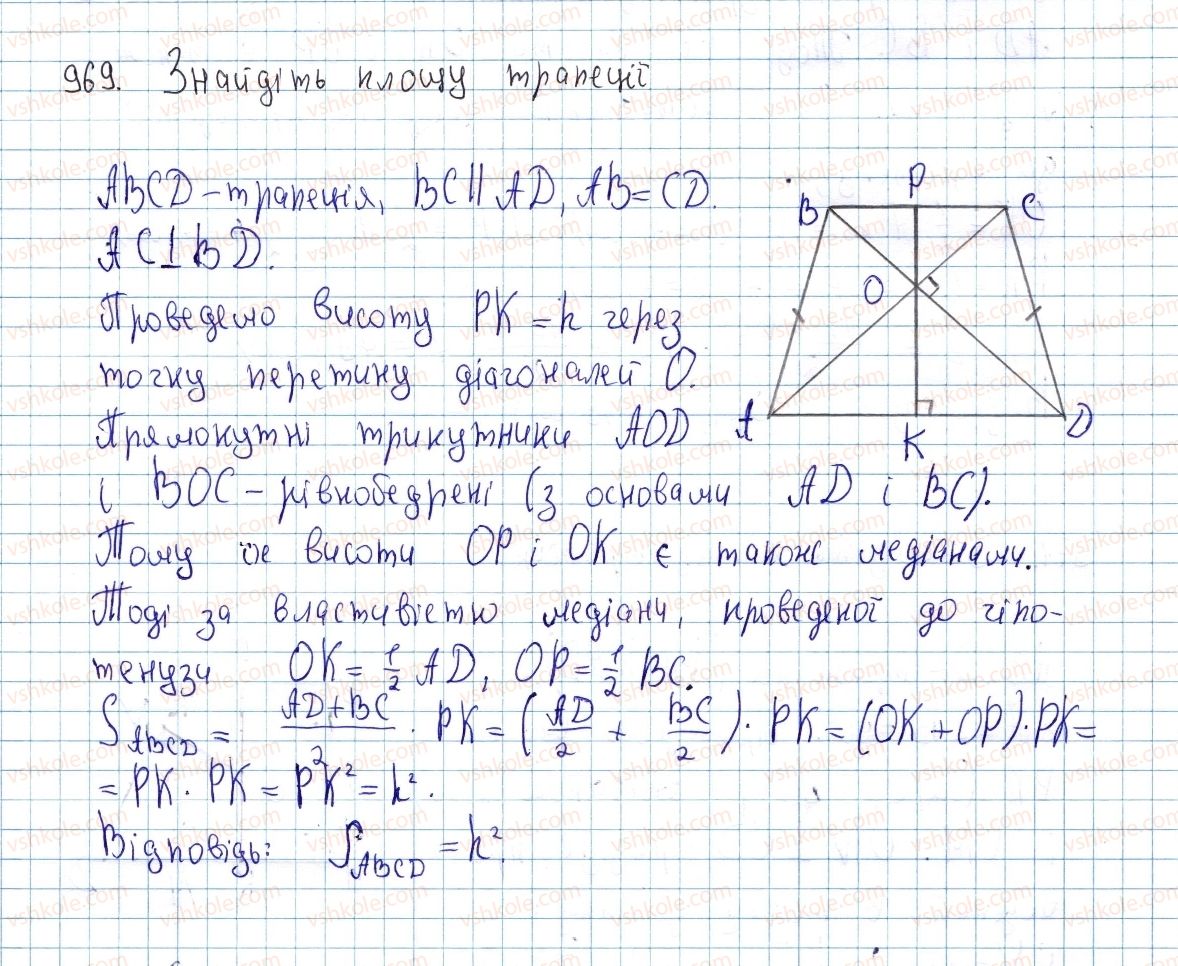 969. Знайдіть площу трапеції
ABCD – трапеція, BC || AD, AB = CD.
AC ⊥ BD.
Проведемо висоту PK = h через
точку перетину діагоналей O.
Прямокутні трикутники AOD
і BOC – рівнобедрені (з основами AD і BC).
Тому їх висоти OP і OK є також медіанами.
Тоді за властивістю медіани, проведеної до гіпо-
тенузи OK = 1/2 AD, OP = 1/2 BC.
S_ABCD = (AD + BC)/2 · PK = (AD/2 + BC/2) · PK = (OK + OP) · PK =
= PK · PK = P²K² = h².
Відповідь: S_ABCD = h².
P
B
C
O
A
K
D
vshkole.com